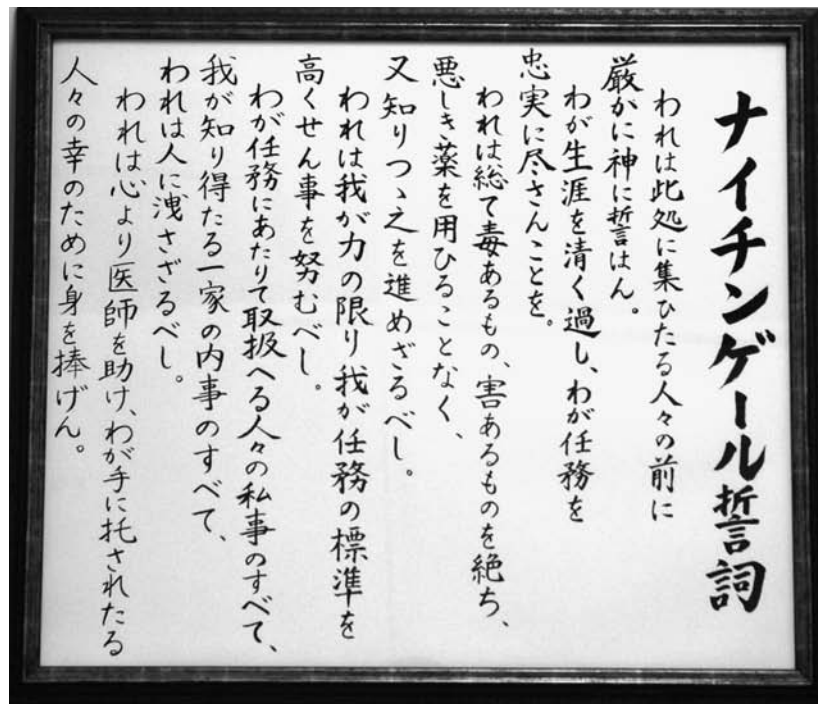 ナイチンゲール誓詞
われは此処に集ひたる人々の前に
厳かに神に誓はん。
わが生涯を清く過し、わが任務を
忠実に尽さんことを。
われは総て毒あるもの、害あるものを絶ち、
悪しき薬を用ひることなく、
又知りつゝ之を進めざるべし。
われは我が力の限り我が任務の標準を
高くせん事を努むべし。
わが任務にあたりて取扱へる人々の私事のすべて、
我が知り得たる一家の内事のすべて、
われは人に洩さざるべし。
われは心より医師を助け、わが手に托されたる
人々の幸のために身を捧げん。